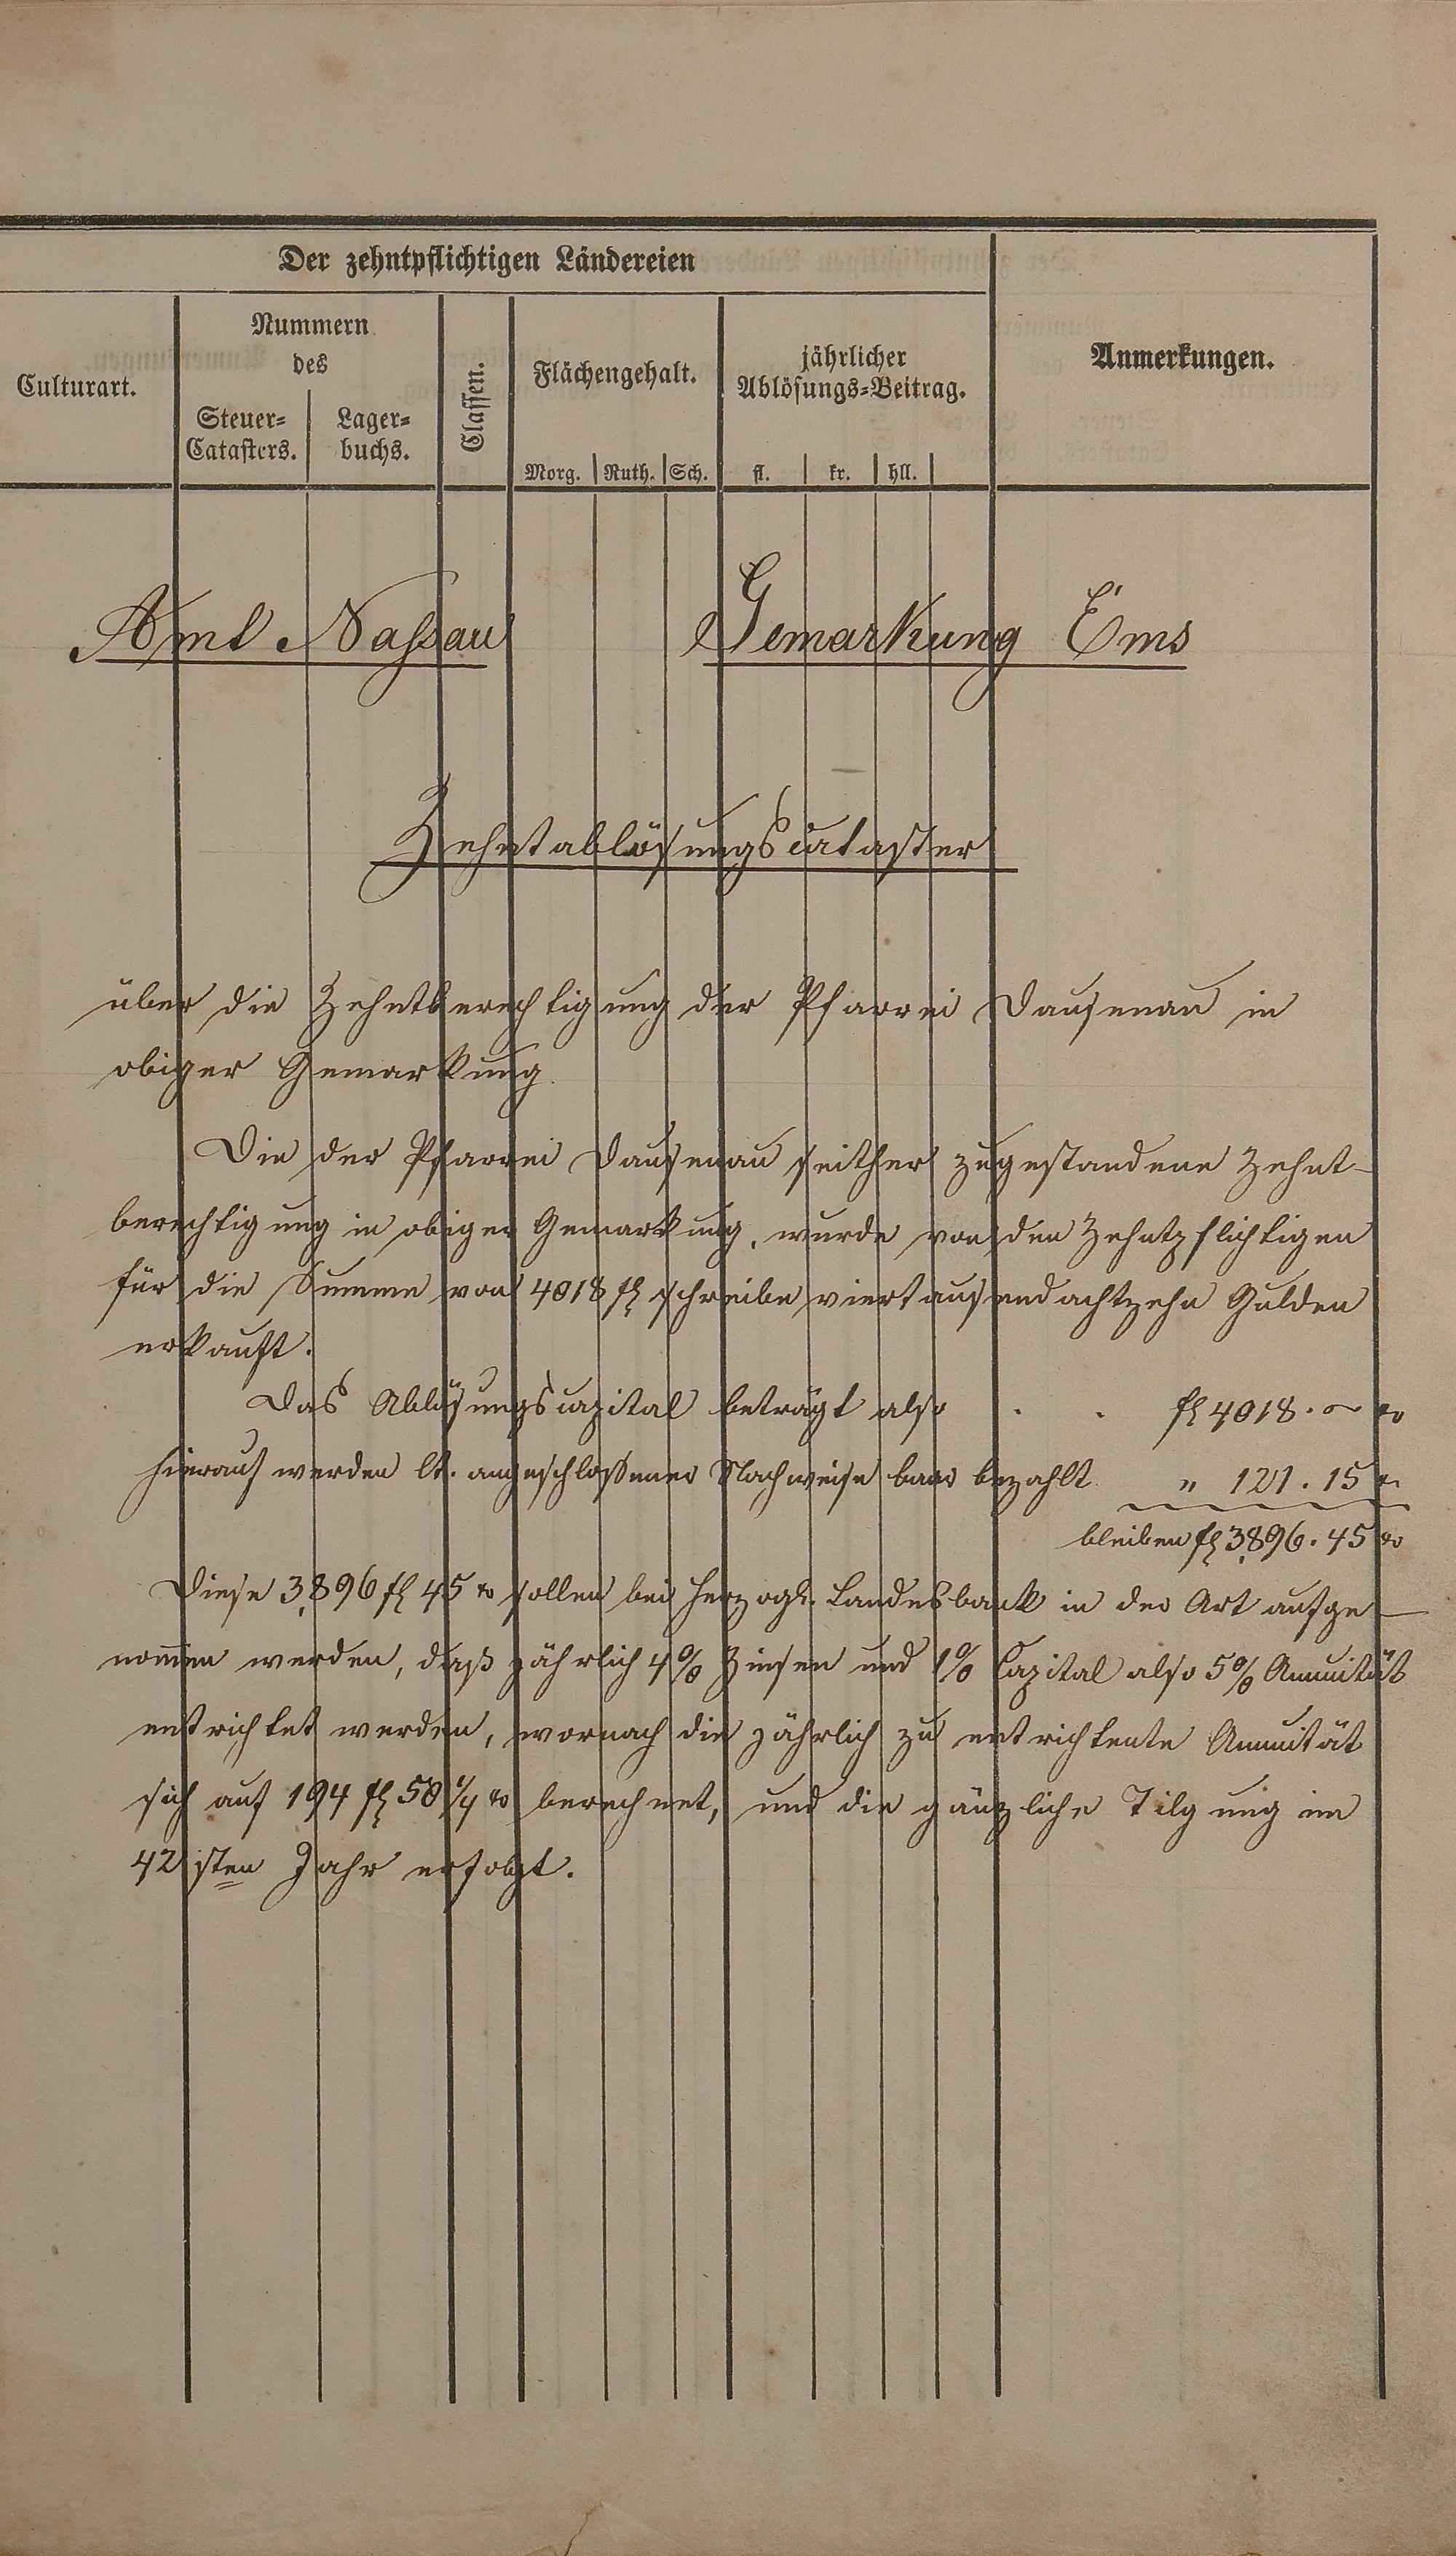 Der zehntpflichtigen Ländereien
Culturart.
Nummern
des
Steuer-
Catasters.
Lager-
buchs.
Classen.
Flächengehalt.
Morg. Ruth. Sch.
jährlicher
Ablösungs-Beitrag.
fl. kr. hll.
Anmerkungen.
Amt Nassau Gemarkung Ems
Zehntablösungscataster
über die Zehntberechtigung der Pfarrei Dausenau in
obiger Gemarkung.
Die der Pfarrei Dausenau seither zugestandene Zehnt-
berechtigung in obiger Gemarkung, wurde von den Zehntpflichtigen
für die Summe von 4018 fl schreibe viertausendachtzehn Gulden
erkauft.
Das Ablösungscapital beträgt also . . fl 4018. – xr
hierauf werden lt. angeschlossener Nachweise baar bezahlt " 121. 15 xr
bleiben fl 3,896. 45 xr
Diese 3,896 fl 45 xr sollen bei Herzogl. Landesbank in der Art aufge-
nom̄en werden, daß jährlich 4% Zinsen und 1% Capital also 5% Annuität
entrichtet werden, wornach die jährlich zu entrichtente Annuität
sich auf 194 fl 50 1/4 xr berechnet, und die gänzliche Tilgung im
42sten Jahr erfolgt.